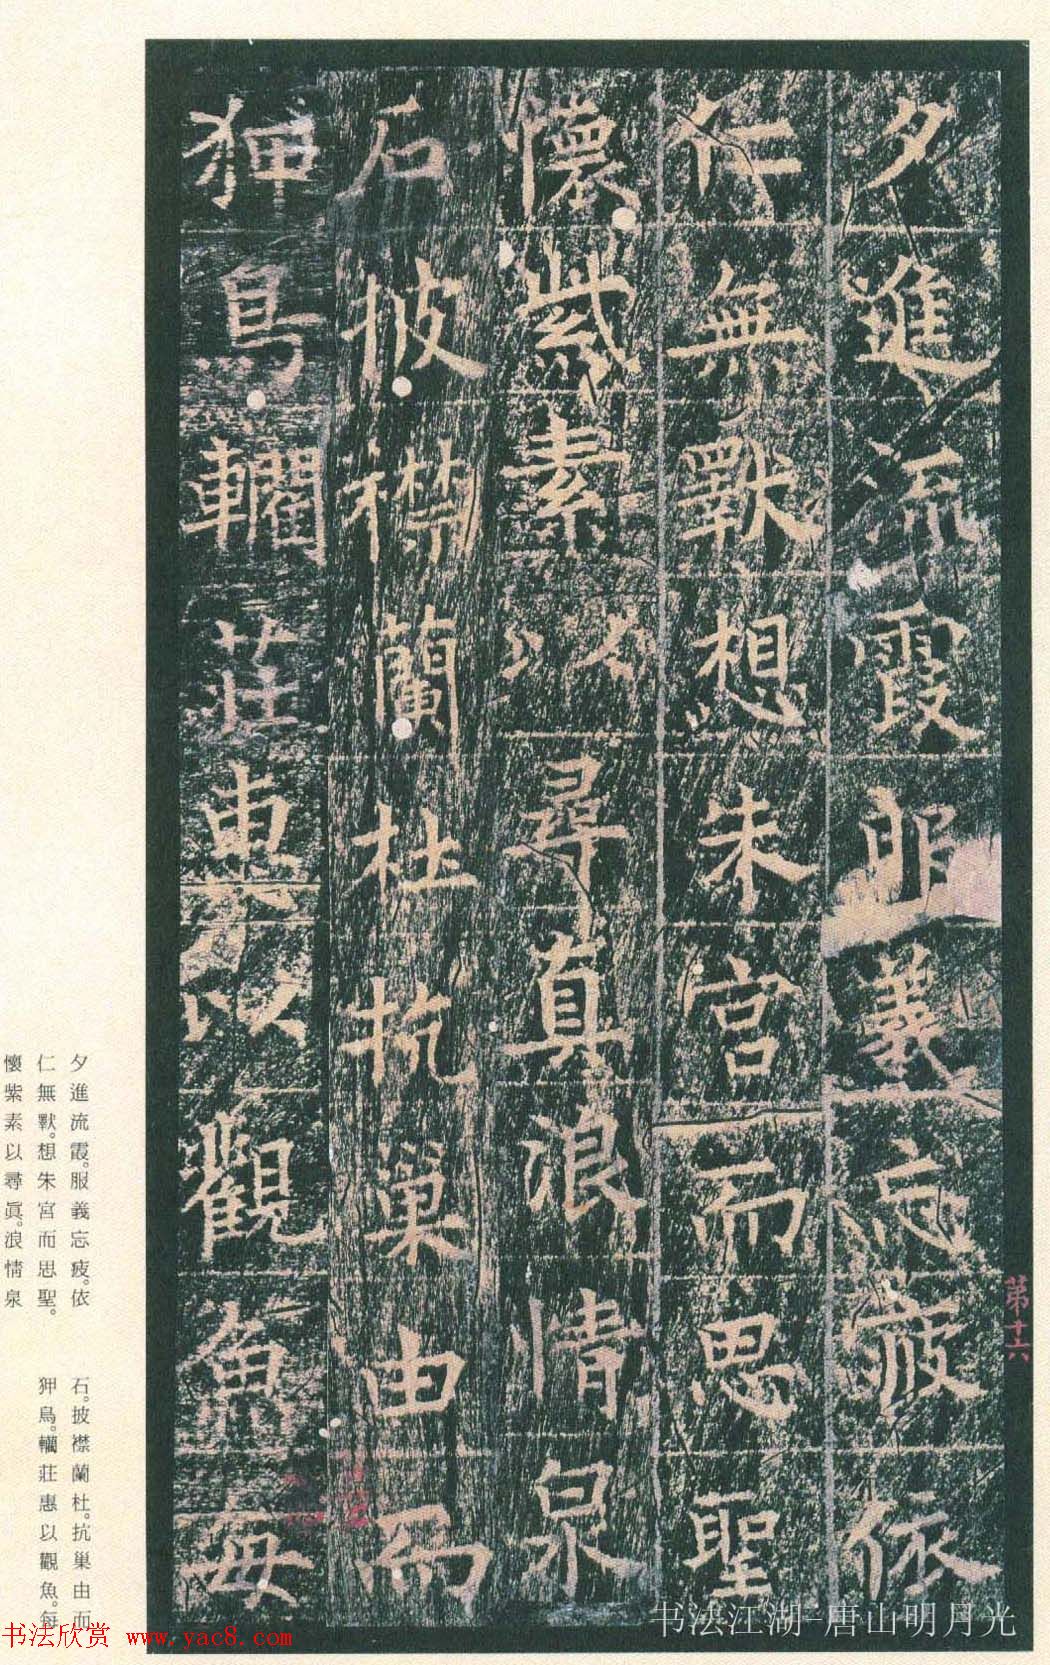 夕進流霞服義忘疲依
仁無斁想朱宮而思聖
懷紫素以尋真浪情泉
石披襟蘭杜抗巢由而
狎鳥轥莊惠以觀魚每
第十六
夕進流霞。服義忘疲。依
仁無斁。想朱宮而思聖。
懷紫素以尋眞。浪情泉
石。披襟蘭杜。抗巢由而
狎鳥。轥莊惠以觀魚。每
书法江湖-唐山明月光
书法欣赏 www.yac8.com